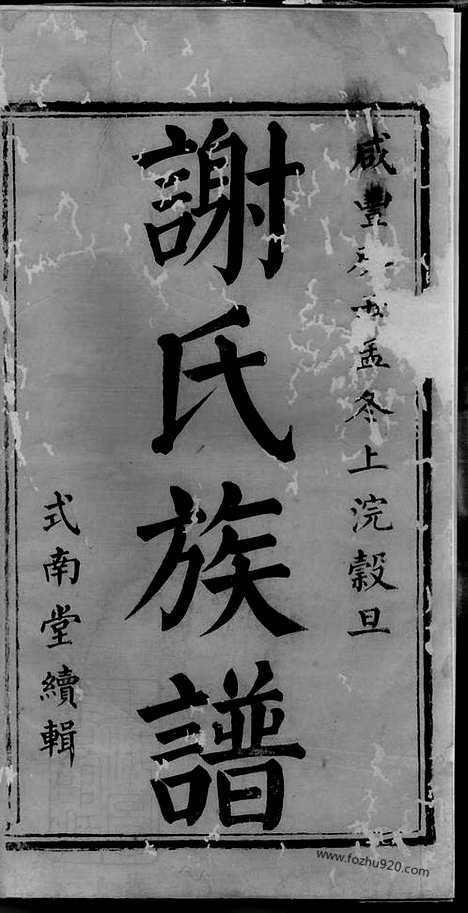 咸豐孟冬上浣穀旦
謝氏族譜
式南堂續輯
www.fozhu920.com